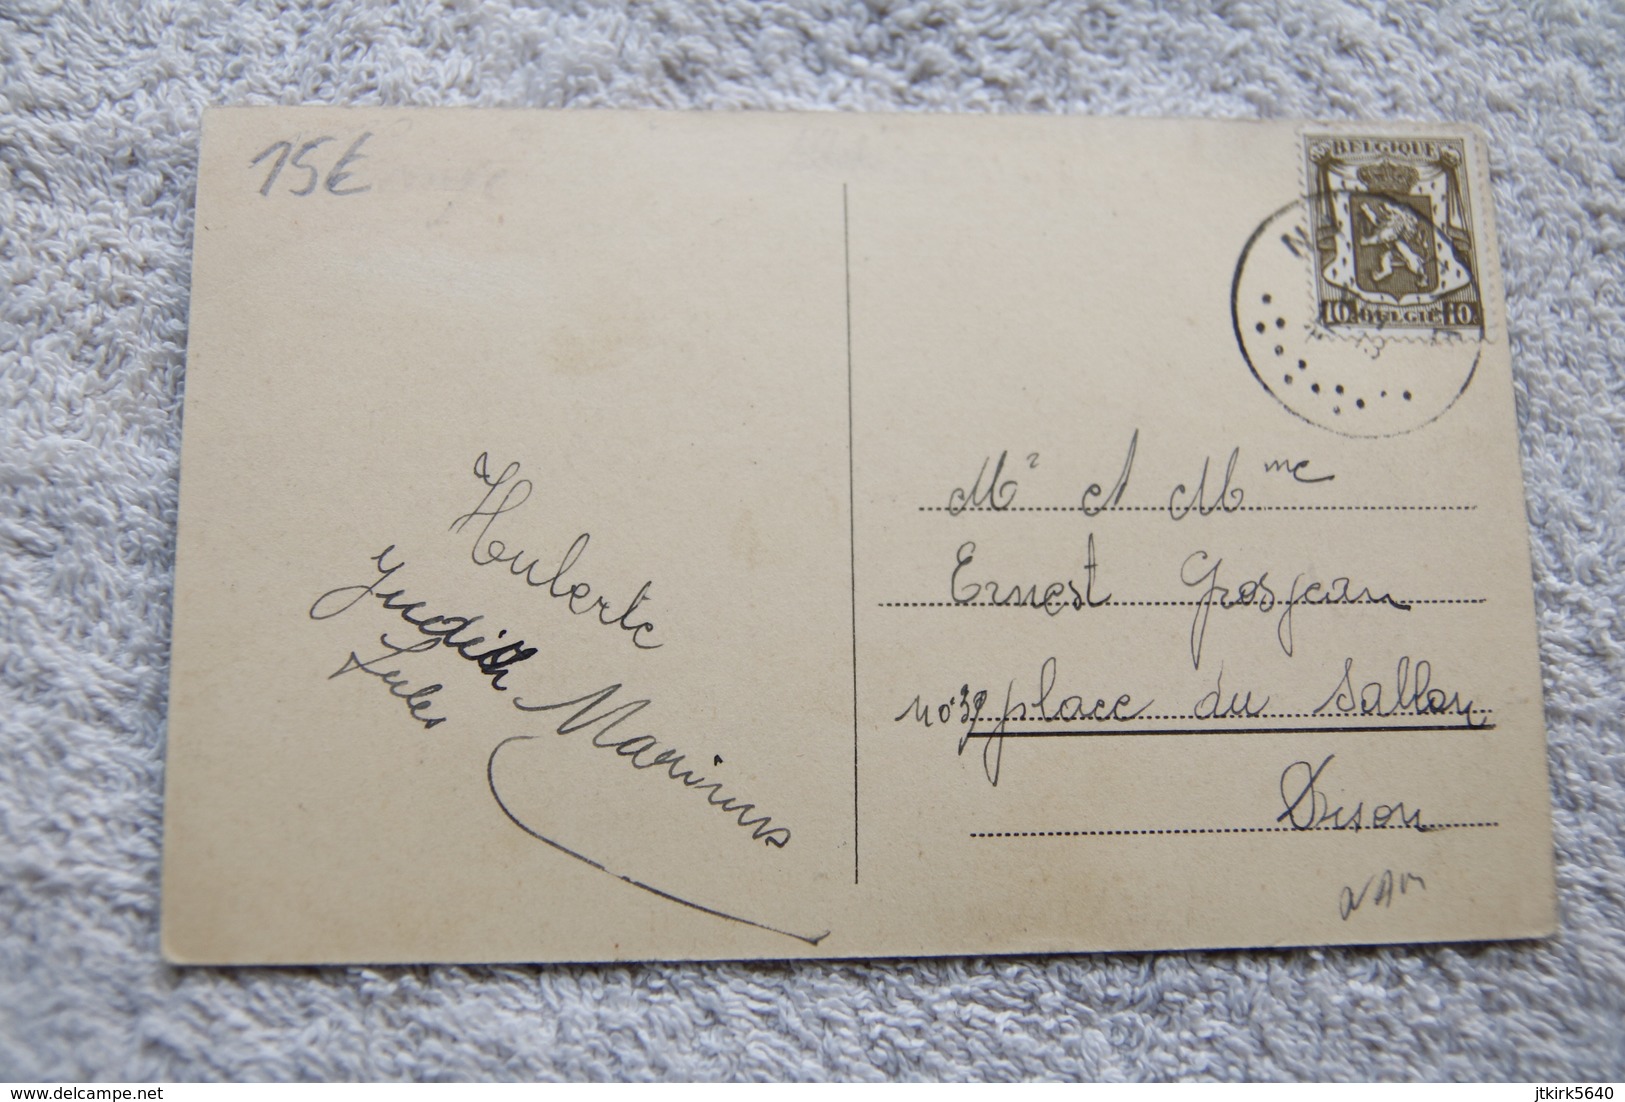 15€
BELGIQUE
10 BELGIE 10
Mr et Mme
Ernest Grosjean
no 39 place du Sablon
Dison
Huberte
Judith
Jules
delcampe.net
jtkirk5640